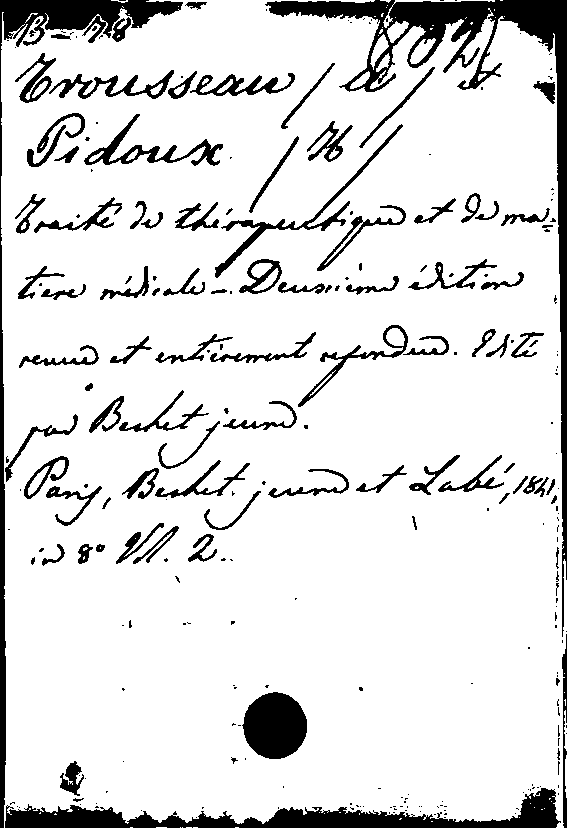 B-78 (802)
Trousseau / A / et
Pidoux / H /
Traité de thérapeutique et de ma-
tiere médicale - Deuxième édition
revue et entièrement refondue. Edité
par Bechet jeune.
Paris, Bechet jeune et Labé, 1841,
in 8° Vol. 2.